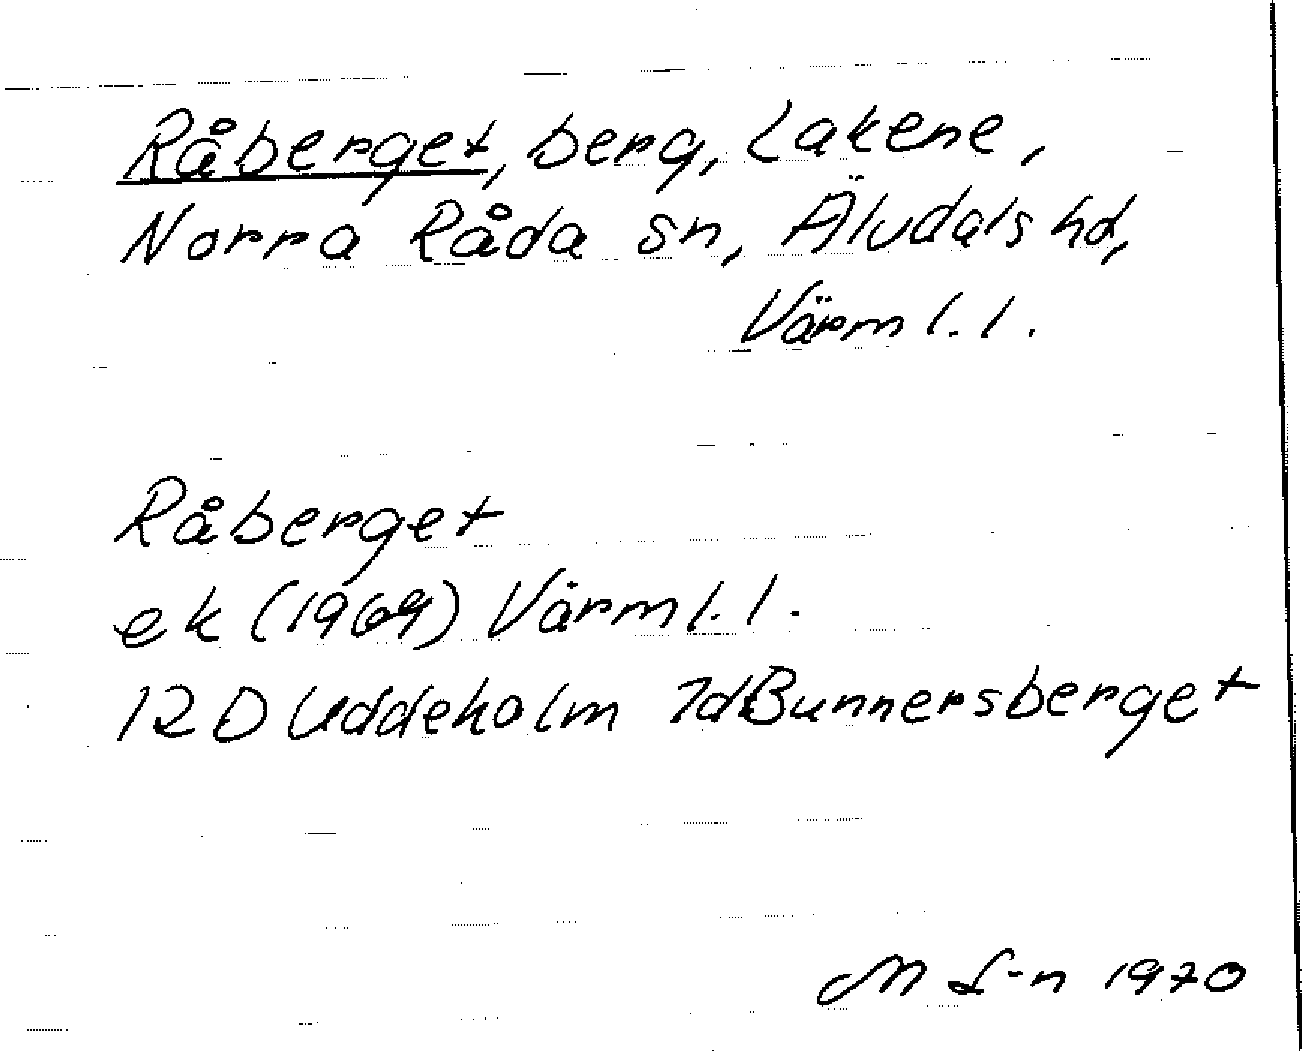 Råberget, berg, Lakene,
Norra Råda sn, Älvdals hd,
Värml. l.
Råberget
ek (1969) Värml. l.
12 D Uddeholm 7d Bunnersberget
M L-n 1970